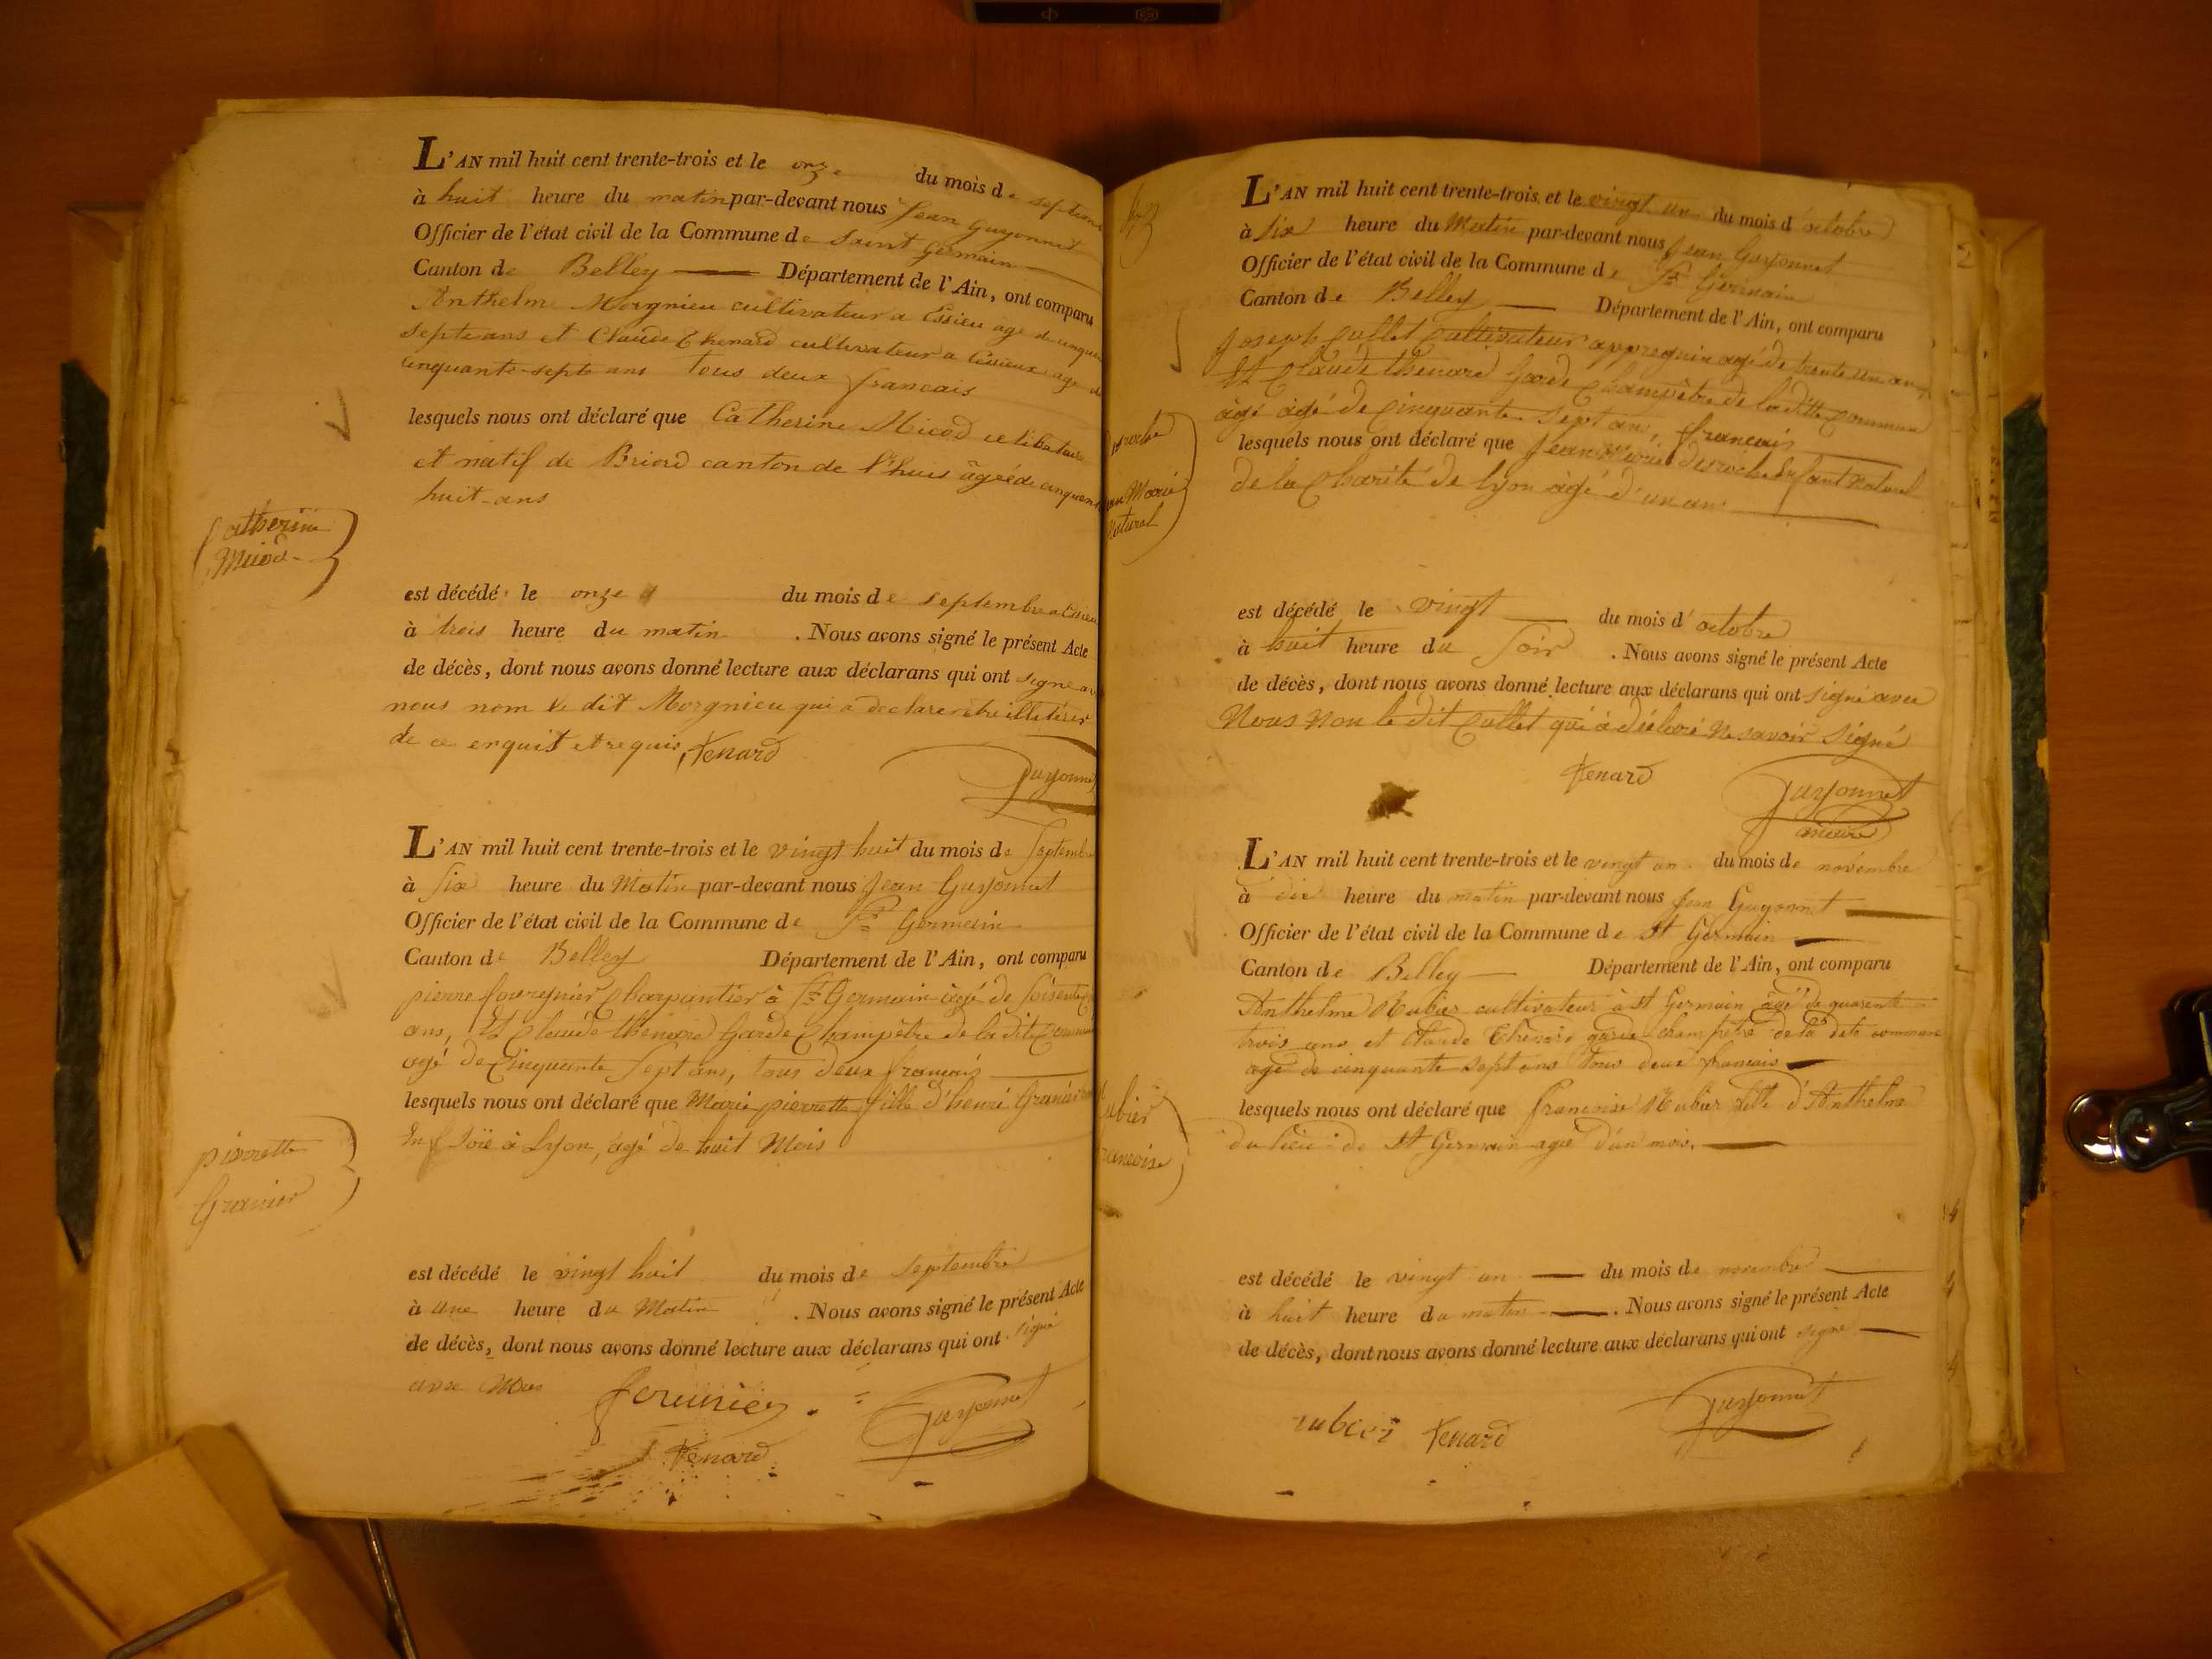 L'AN mil huit cent trente-trois et le onze du mois de septem
à huit heure du matin par-devant nous Jean Guyonnet
Officier de l'état civil de la Commune de Saint Germain
Canton de Belley Département de l'Ain, ont comparu
Anthelme Morgnieu cultivateur a Essieu age de cinquan
septe ans et Claude Thenard cultivateur a Essieux age de
cinquante-septe ans tous deux francais
lesquels nous ont déclaré que Catherine Micod celibataire
et natif de Briord canton de l'huis âgéé de cinquen
huit-ans
Catherine
Micod
est décédé le onze du mois de septembre a Essieu
à trois heure du matin . Nous avons signé le présent Acte
de décès, dont nous avons donné lecture aux déclarans qui ont signe av
nous nom le dit Morgnieu qui a declare etre illitéres
de ce enquit et requis, tenard
Guyonnet
L'AN mil huit cent trente-trois et le vingt huit du mois de Septembre
à Six heure du Matin par-devant nous Jean Guyonnet
Officier de l'état civil de la Commune de St Germain
Canton de Belley Département de l'Ain, ont comparu
pierre Charpantier à St Germain âgé de
ans, Et Claude thenard Garde Champêtre de la dite Commune
agé de Cinquante Sept ans, tous deux francais
lesquels nous ont déclaré que Marie pierrette fille d'henri Granier
à Lyon, âgé de huit Mois
pierrette
Granier
est décédé le vingt huit du mois de Septembre
à une heure du Matin . Nous avons signé le présent Acte
de décès, dont nous avons donné lecture aux déclarans qui ont signé
avec Nous
Guyonnet
tenard
L'AN mil huit cent trente-trois et le vingt un du mois d'octobre
à Six heure du Matin par-devant nous Jean Guyonnet
Officier de l'état civil de la Commune de St Germain
Canton de Belley Département de l'Ain, ont comparu
Joseph Cultivateur agé de trente un ans,
Et Claude thenard Garde Champêtre de la ditte Commune
âgé âgé de Cinquante Sept ans, francais
lesquels nous ont déclaré que Jean Marie Desroche Enfant Naturel
de la Charité de Lyon âgé d'un an
Desroche
Jean Marie
Naturel
est décédé le vingt du mois d'octobre
à huit heure du Soir . Nous avons signé le présent Acte
de décès, dont nous avons donné lecture aux déclarans qui ont signé avec
Nous Non le dit qui à déclaré Ne savoir Signé
tenard
Guyonnet
L'AN mil huit cent trente-trois et le vingt un du mois de novembre
à dix heure du matin par-devant nous Jean Guyonnet
Officier de l'état civil de la Commune de St Germain
Canton de Belley Département de l'Ain, ont comparu
Anthelme Rubier cultivateur à St Germain âgé de quarente
trois ans et Claude Thenard garde champetre de la dete commune
age de cinquante sept ans tous deux francais
lesquels nous ont déclaré que francoise Rubier fille d'Anthelme
du lieu de St Germain agee d'un mois.
Rubier
francoise
est décédé le vingt un du mois de novembre
à huit heure du matin . Nous avons signé le présent Acte
de décès, dont nous avons donné lecture aux déclarans qui ont signé
rubier tenard
Guyonnet